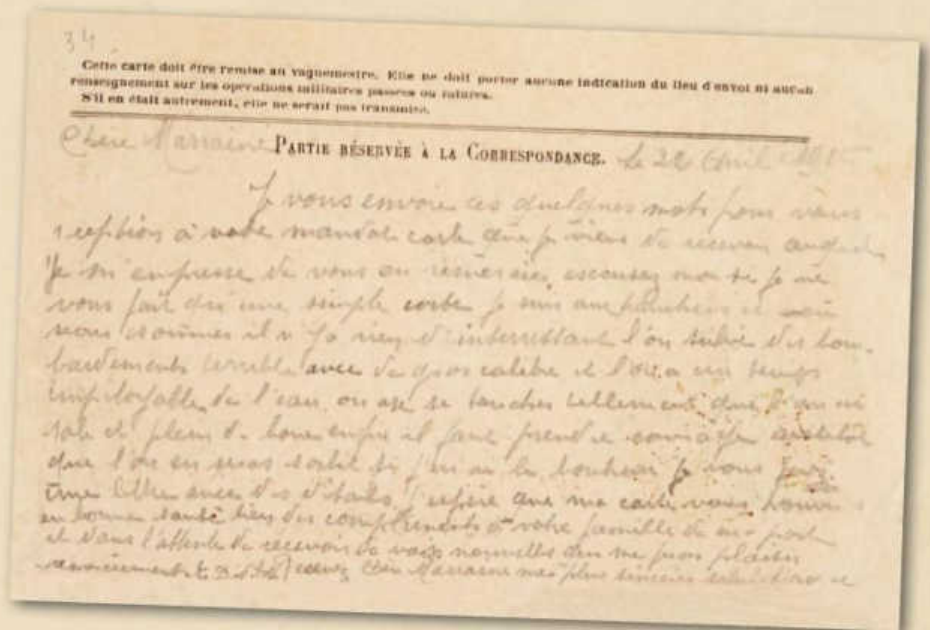 34
Cette carte doit être remise au vaguemestre. Elle ne doit porter aucune indication du lieu d'envoi ni aucun
renseignement sur les opérations militaires passées ou futures.
S'il en était autrement, elle ne serait pas transmise.
Chère Marraine PARTIE RÉSERVÉE À LA CORRESPONDANCE. le 22 Avril
Je vous envoie ces quelques mots pour vous
réception à votre mandat carte que je viens de recevoir
Je m'empresse de vous en remercier, excusez moi si je ne
vous fait qu'une simple carte je suis aux tranchées et
nous sommes il n'y a rien d'interressant l'on subie des bom-
bardements terrible avec de gros calibre et l'on a un temps
impitoyable de l'eau, on ose se coucher tellement que l'on
sale et plein de boue enfin il faut prendre courage aussitôt
que l'on en seras sortie si j'en ai le bonheur je vous
une lettre avec des détails j'espère que ma carte vous trouve
en bonne santé bien des compliments à votre famille de ma part
et dans l'attente de recevoir de vos nouvelles plaisir
recevez chère Marraine mes plus sincères